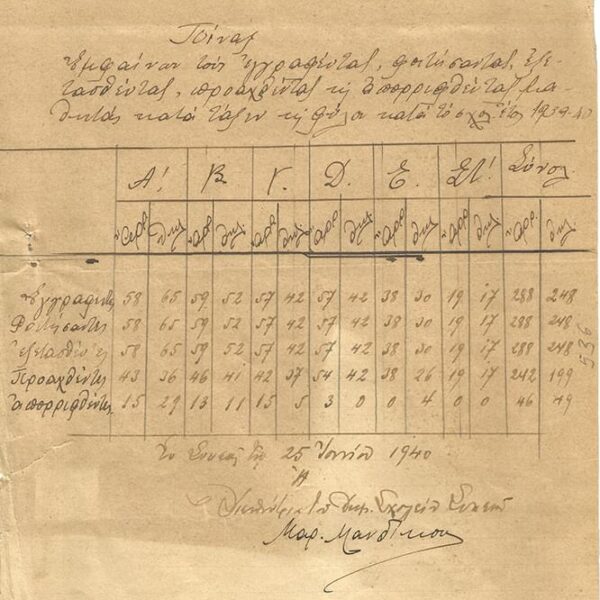 Πίναξ
Ἐμφαίνων τούς ἐγγραφέντας, φοιτήσαντας, ἐξε-
τασθέντας, προαχθέντας κ̣ ἀπορριφθέντας μα-
θητάς κατά τάξιν κ̣ φύλα κατά τό σχολ. ἔτος 1939-40
Α! Β Γ. Δ. Ε. ΣΤ! Σύνολ
ἄρρ θηλ. ἄρρ θηλ. ἄρρ θηλ. ἄρρ θηλ. ἄρρ θηλ. ἄρρ. θηλ. ἄρρ. θηλ.
Ἐγγραφέντες 58 65 59 52 57 42 57 42 38 30 19 17 288 248
Φοιτήσαντες 58 65 59 52 57 42 57 42 38 30 19 17 288 248
ἐξετασθέντες 58 65 59 52 57 42 57 42 38 30 19 17 288 248
Προαχθέντες 43 36 46 41 42 37 54 42 38 26 19 17 242 199
ἀπορριφθέντες 15 29 13 11 15 5 3 0 0 4 0 0 46 49
536
25 Ἰουνίου 1940
Ἡ
Διευθύντρια τοῦ Δημ. Σχολείου
Μαρ.